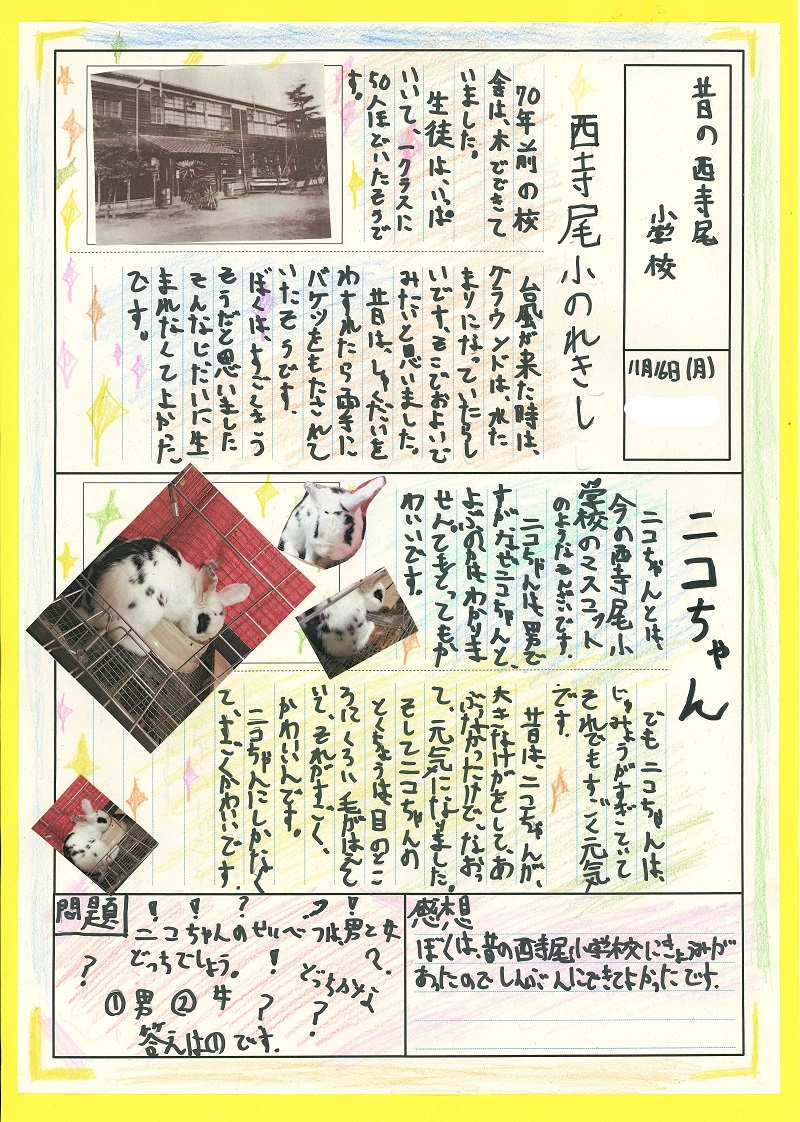 昔の西寺尾
小学校
11月16日(月)
西寺尾小のれきし
70年前の校
舎は、木でできて
いました。
生徒は、いっぱ
いいて、一クラスに
50人ほどいたそうで
す。
台風が来た時は、
グラウンドは、水た
まりになっていたらし
いです。そこでおよいで
みたいと思いました。
昔は、しゅくだいを
わすれたら両手に
バケツをもたされて
いたそうです。
ぼくは、すごくきつ
そうだと思いました
そんなじだいに生
まれなくてよかった
です。
ニコちゃん
ニコちゃんとは、
今の西寺尾小
学校のマスコット
のようなそんざいです。
ニコちゃんは、男で
すがなぜニコちゃんと、
よぶのかはわかりま
せん。でもとってもか
わいいです。
でもニコちゃんは、
じゅみょうがすぎていて
それでもすごく元気
です。
昔は、ニコちゃんが、
大きなけがをして、あ
ぶなかったけどで、なおっ
て、元気になりました。
そしてニコちゃんの
とくちょうは、目のとこ
ろにくろい毛がはえて
いて、それがすごく、
かわいいんです。
ニコちゃんにしかなく
て、すごくかわいいです。
感想
ぼくは、昔の西寺尾小学校にきょうみが
あったのでしんぶんにできてよかったです。
問題
ニコちゃんのせいべつは、男と女
どっちでしょう。
どっちかな
①男 ②女
答えは①です.